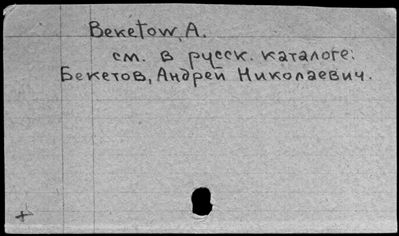 Beketow, A.
см. в русск. каталоге:
Бекетов, Андрей Николаевич.
+